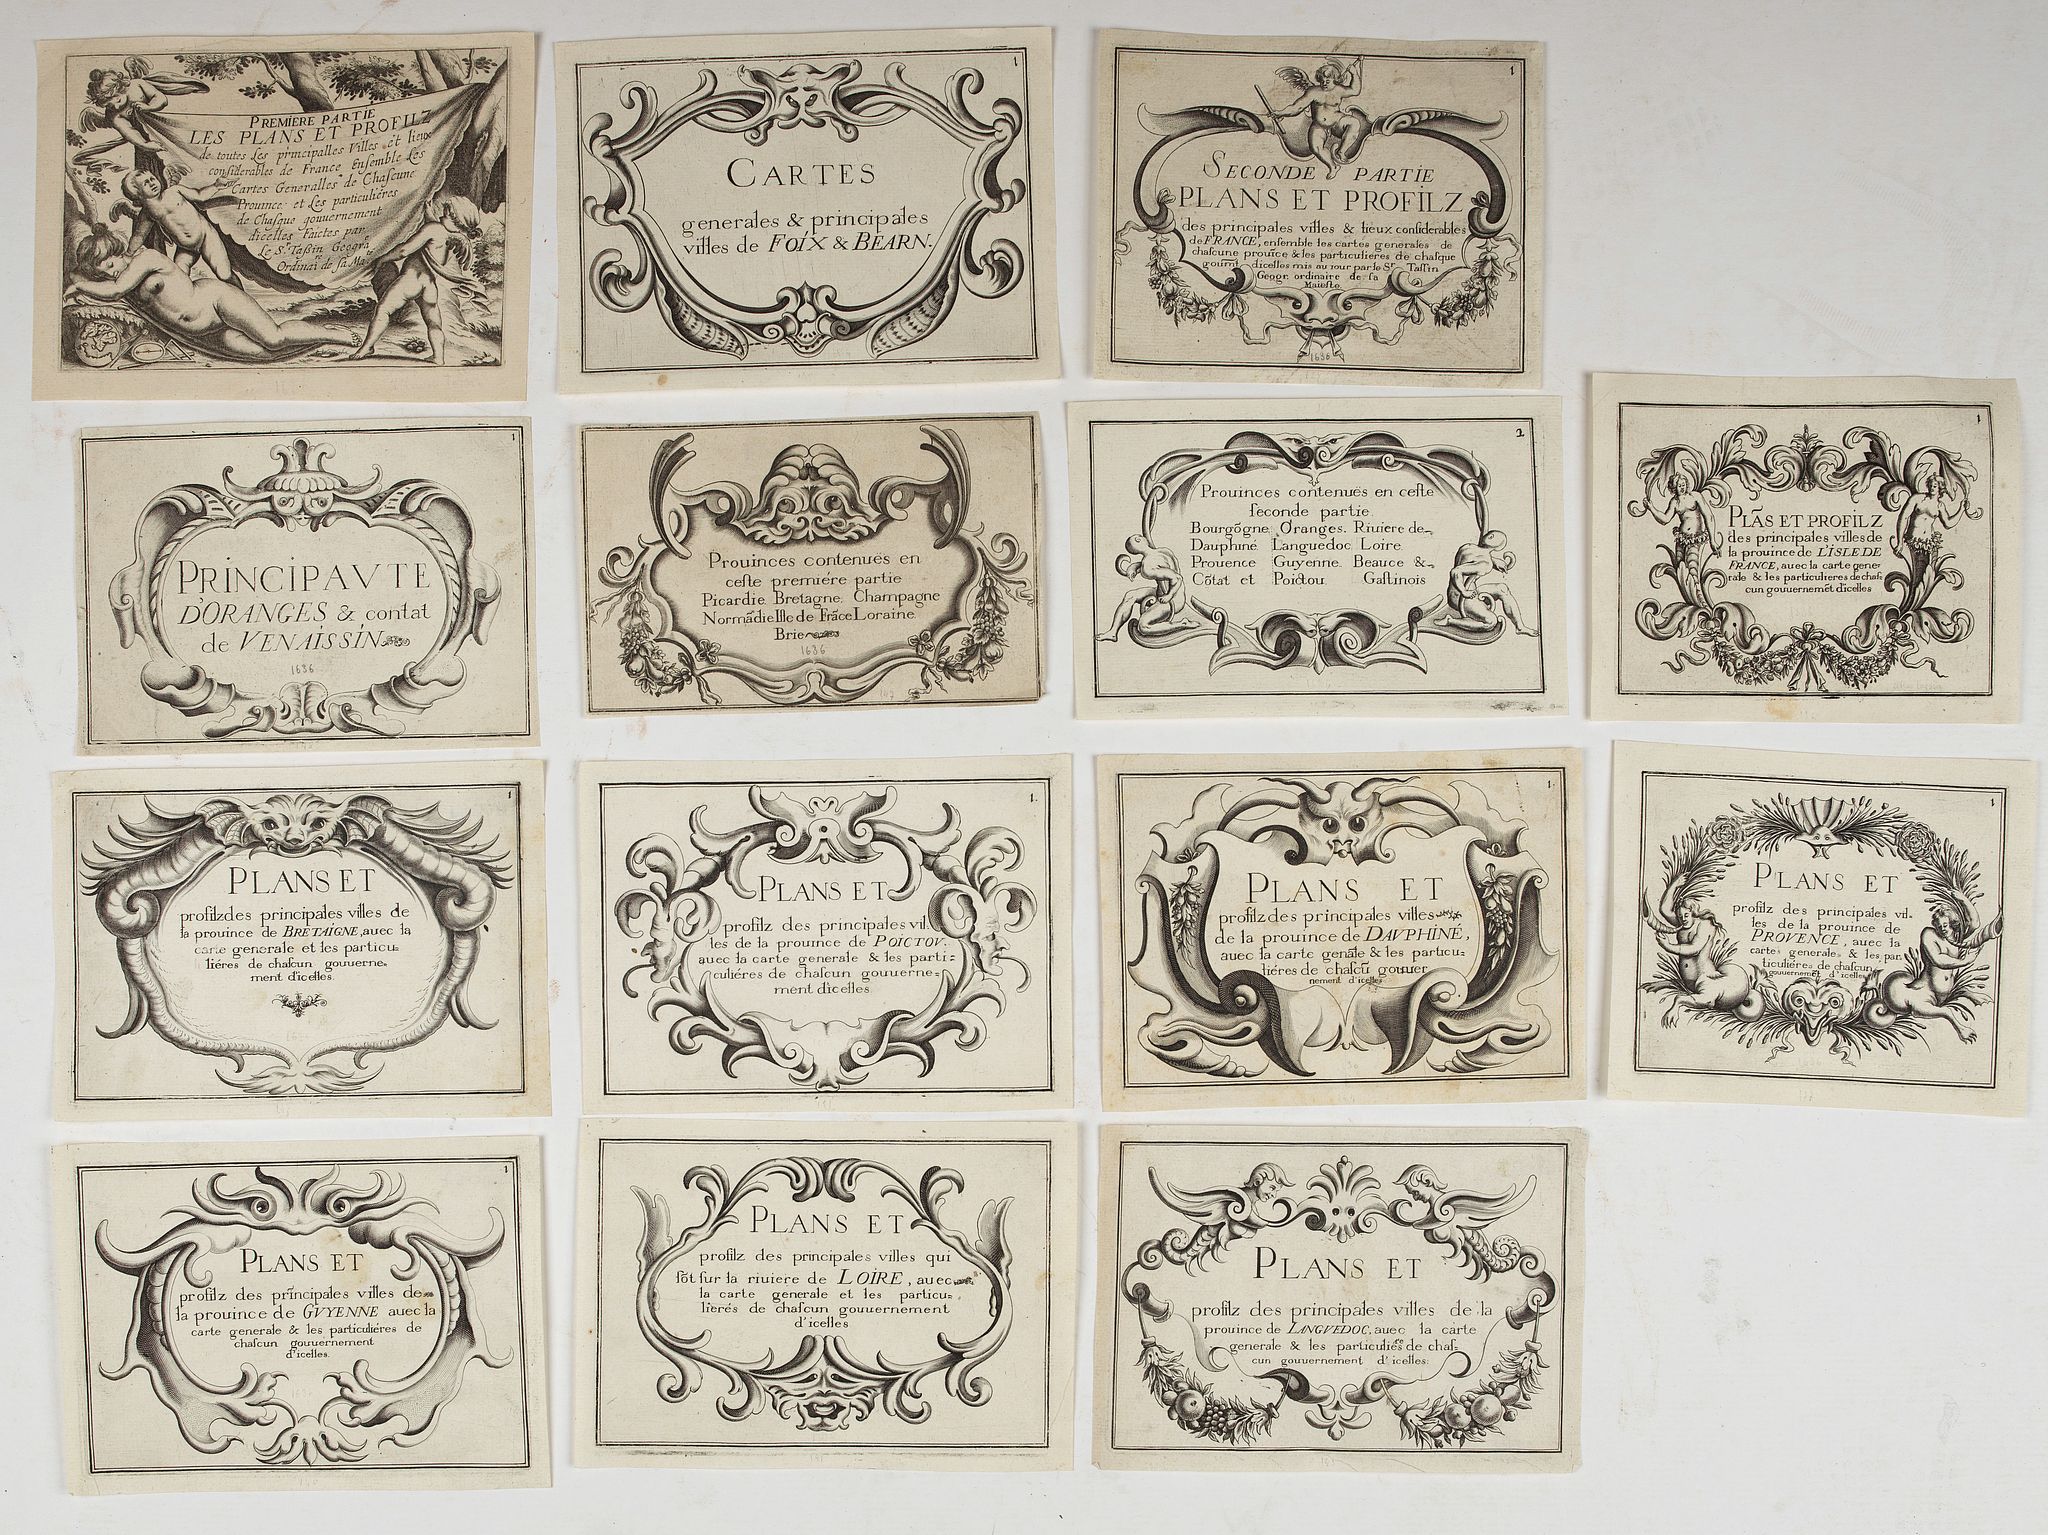 PREMIERE PARTIE
LES PLANS ET PROFILZ
de toutes Les principalles Villes et lieux
considerables de France Ensemble Les
Cartes Generalles de Chascune
Prouince et Les particuliéres
de Chasque gouuernement
dicelles Faictes par
Le Sr. Tassin Geogra
Ordinai.re de sa Ma.te
1
CARTES
generales & principales
villes de FOIX & BEARN.
1
SECONDE PARTIE
PLANS ET PROFILZ
des principales villes & lieux considerables
de FRANCE, ensemble les cartes generales de
chascune prouīce & les particulieres de chasque
gouu.mt dicelles mis au iour par le Sr. Tassin
Geogr. ordinaire de sa
Maieste.
1636
1
PRINCIPAVTE
D'ORANGES & contat
de VENAISSIN
1636
Prouinces contenuës en
ceste premiére partie
Picardie. Bretagne. Champagne
Normādie Isle de Frāce Loraine.
Brie
1636
2
Prouinces contenuës en ceste
seconde partie.
Bourgōgne. Oranges. Riuiere de
Dauphiné Languedoc Loire.
Prouence Guyenne. Beauce &
Cōtat et Poictou. Gastinois
1
PLĀS ET PROFILZ
des principales villes de
la prouince de L'ISLE DE
FRANCE, auec la carte gene-
rale & les particulieres de chas
cun gouuernemēt dicelles
1
PLANS ET
profilz des principales villes de
la prouince de BRETAIGNE, auec la
carte generale et les particu:
liéres de chascun gouuerne=
ment d'icelles.
1.
PLANS ET
profilz des principales vil.
les de la prouince de POICTOV.
auec la carte generale & les parti=
culiéres de chascun gouuerne=
ment dicelles
1.
PLANS ET
profilz des principales villes
de la prouince de DAVPHINÉ,
auec la carte genāle & les particu=
liéres de chascū gouuer
nement d'icelles
1
PLANS ET
profilz des principales vil-
les de la prouince de
PROVENCE, auec la
carte generale & les par
ticuliéres de chascun
gouuernemēt d'icelles
1
PLANS ET
profilz des principales villes de
la prouince de GVYENNE auec la
carte generale & les particuliéres de
chascun gouuernement
d'icelles.
PLANS ET
profilz des principales villes qui
sōt sur la riuiere de LOIRE, auec
la carte generale et les particu=
lierés de chascun gouuernement
d'icelles
PLANS ET
profilz des principales villes de la
prouince de LANGVEDOC, auec la carte
generale & les particuliéres de chas=
cun gouuernement d'icelles: